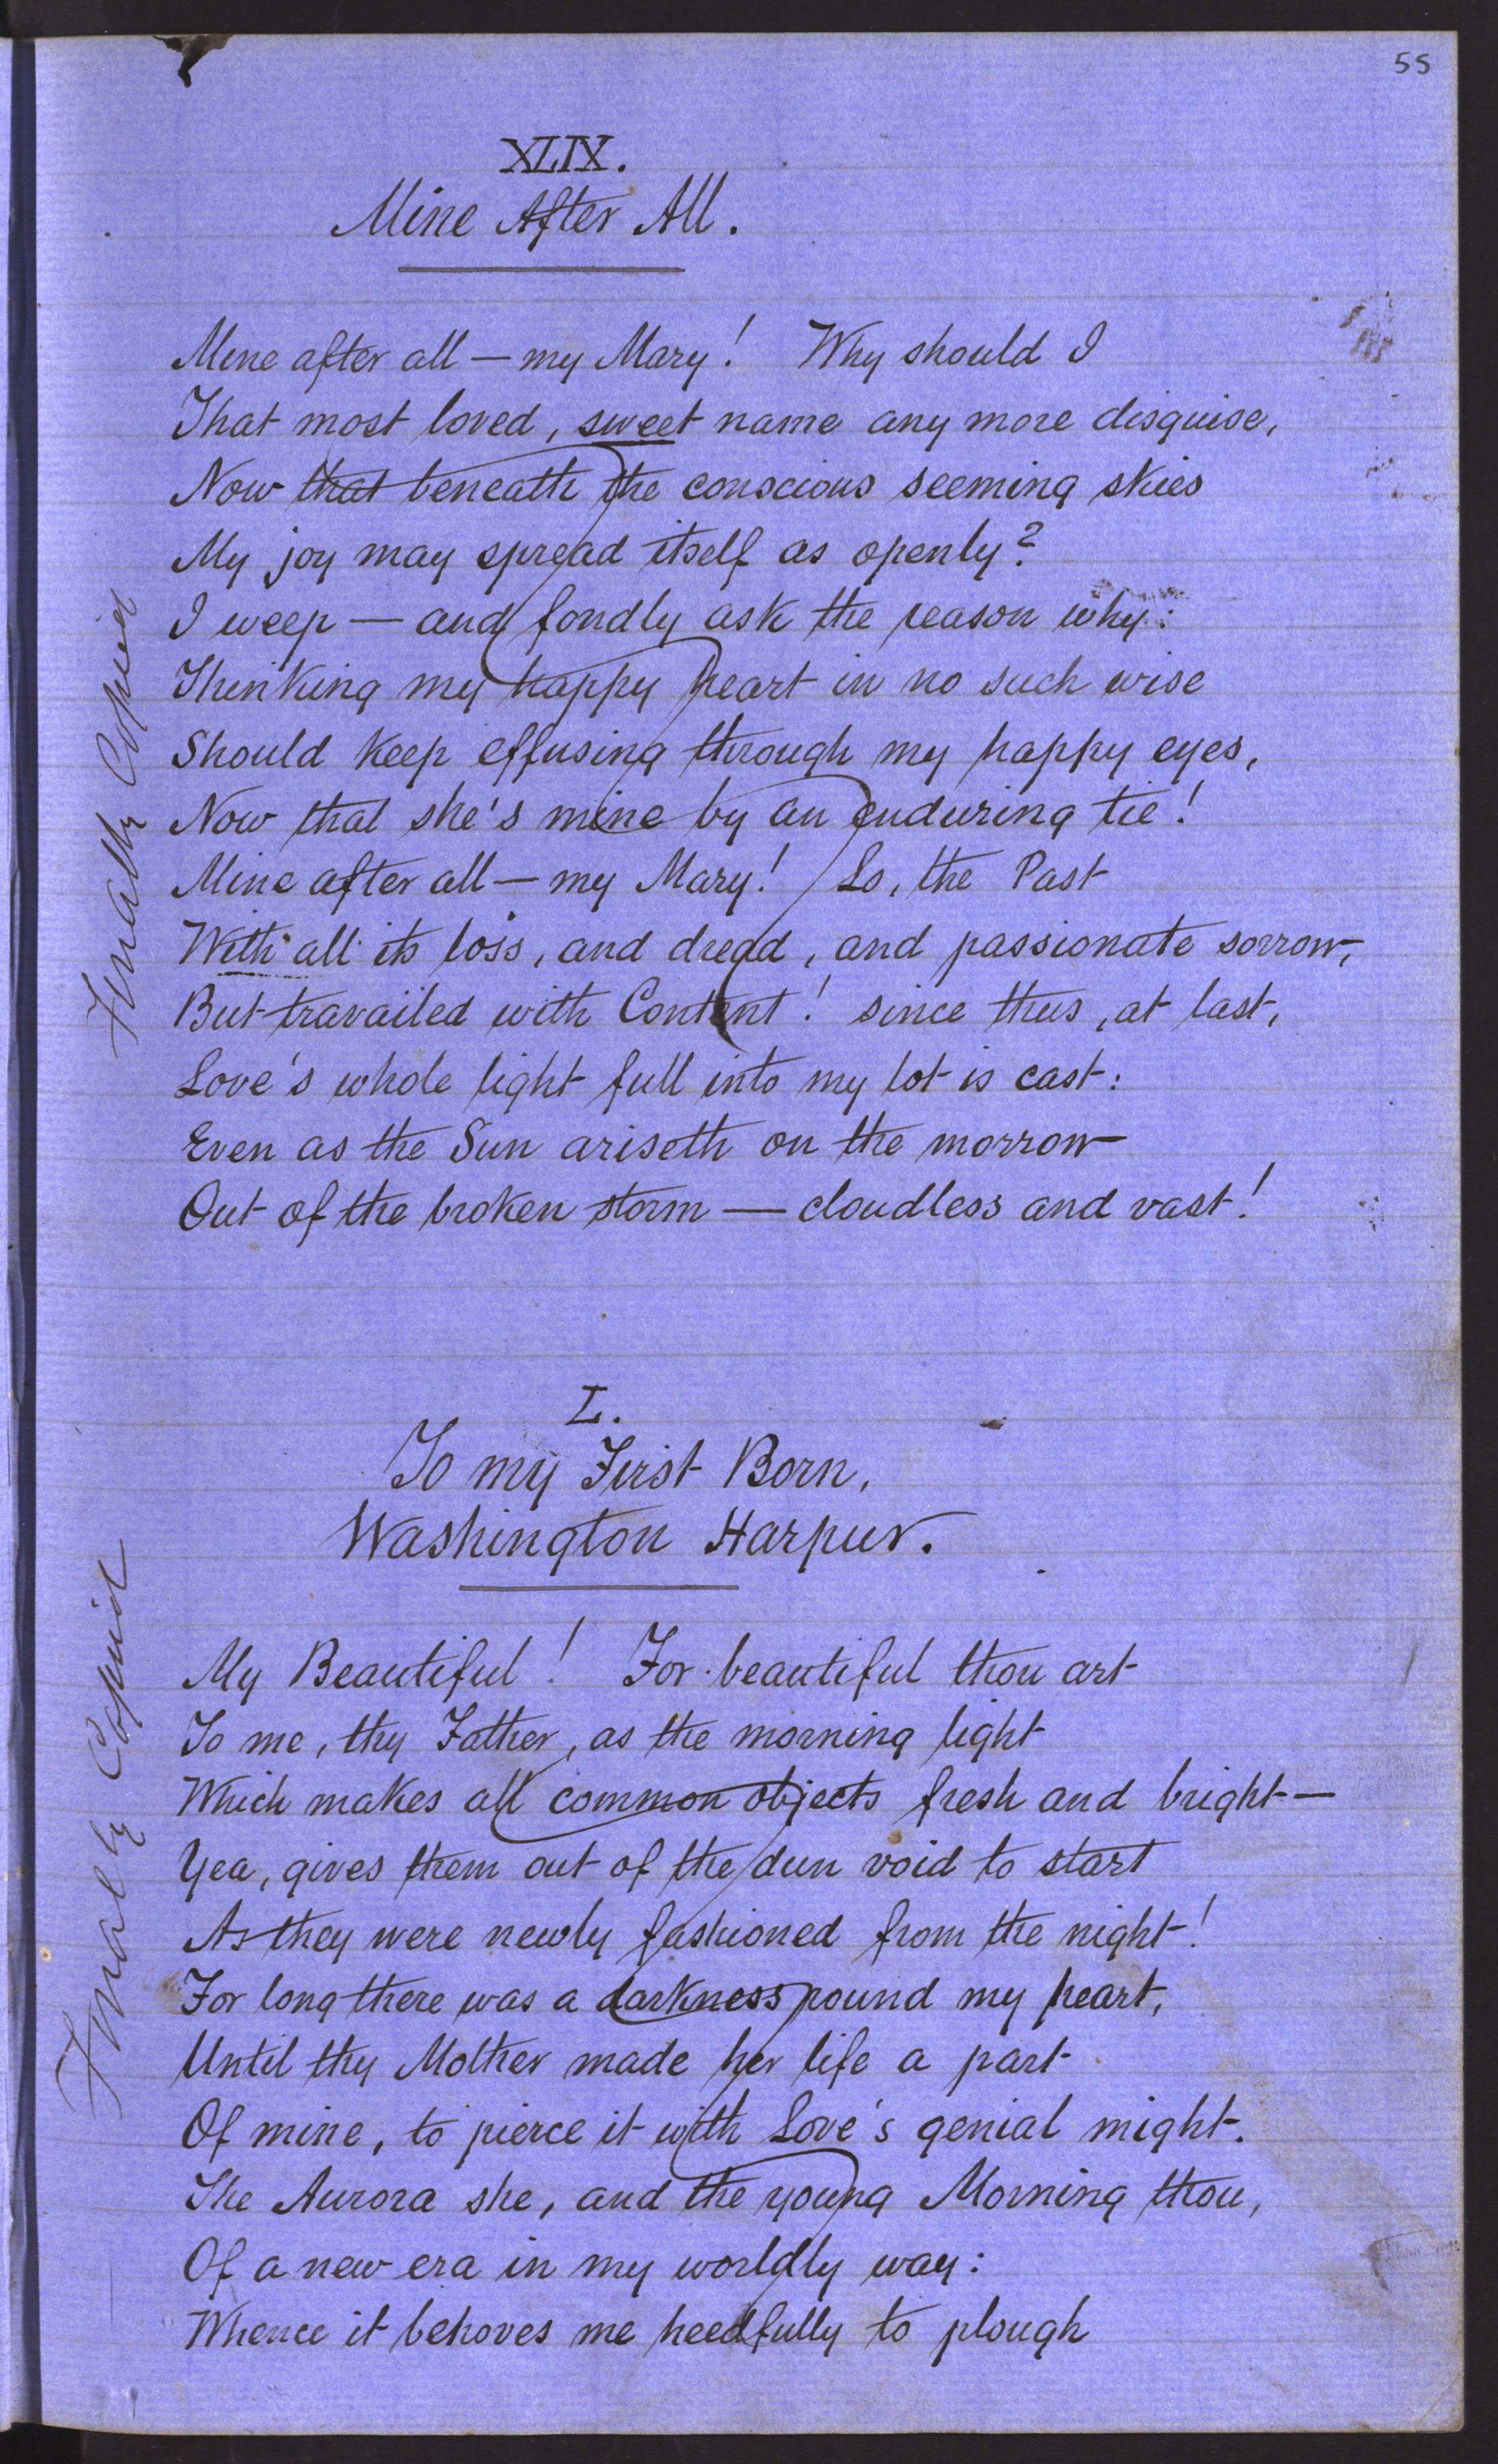 55
XLIX.
Mine After All.
Mine after all — my Mary! Why should I
That most loved, sweet name any more disguise,
Now that beneath the conscious seeming skies
My joy may spread itself as openly?
I weep — and fondly ask the reason why:
Thinking my happy heart in no such wise
Should keep effusing through my happy eyes,
Now that she's mine by an enduring tie!
Mine after all — my Mary! Lo, the Past
With all its loss, and dread, and passionate sorrow,
But travailed with Content! since thus, at last,
Love's whole light full into my lot is cast:
Even as the Sun ariseth on the morrow
Out of the broken storm — cloudless and vast!
Finally Copied
L.
To my First Born,
Washington Harpur.
My Beautiful! For beautiful thou art
To me, thy Father, as the morning light
Which makes all common objects fresh and bright—
Yea, gives them out of the dun void to start
As they were newly fashioned from the night!
For long there was a darkness round my heart,
Until thy Mother made her life a part
Of mine, to pierce it with Love's genial might.
The Aurora she, and the young Morning thou,
Of a new era in my worldly way:
Whence it behoves me heedfully to plough
Finally Copied